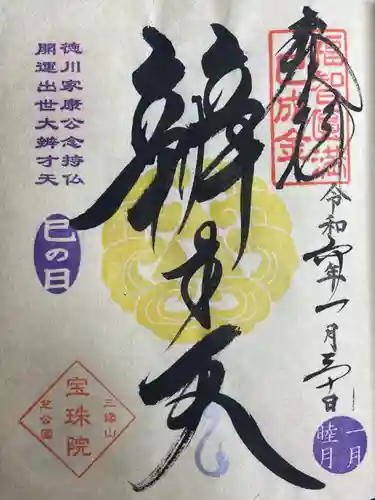 奉拝
福智円満
巳成金
令和六年一月三十日
一月
睦月
辨才天
徳川家康公念持仏
開運出世大辨才天
巳の日
三縁山
宝珠院
芝公園